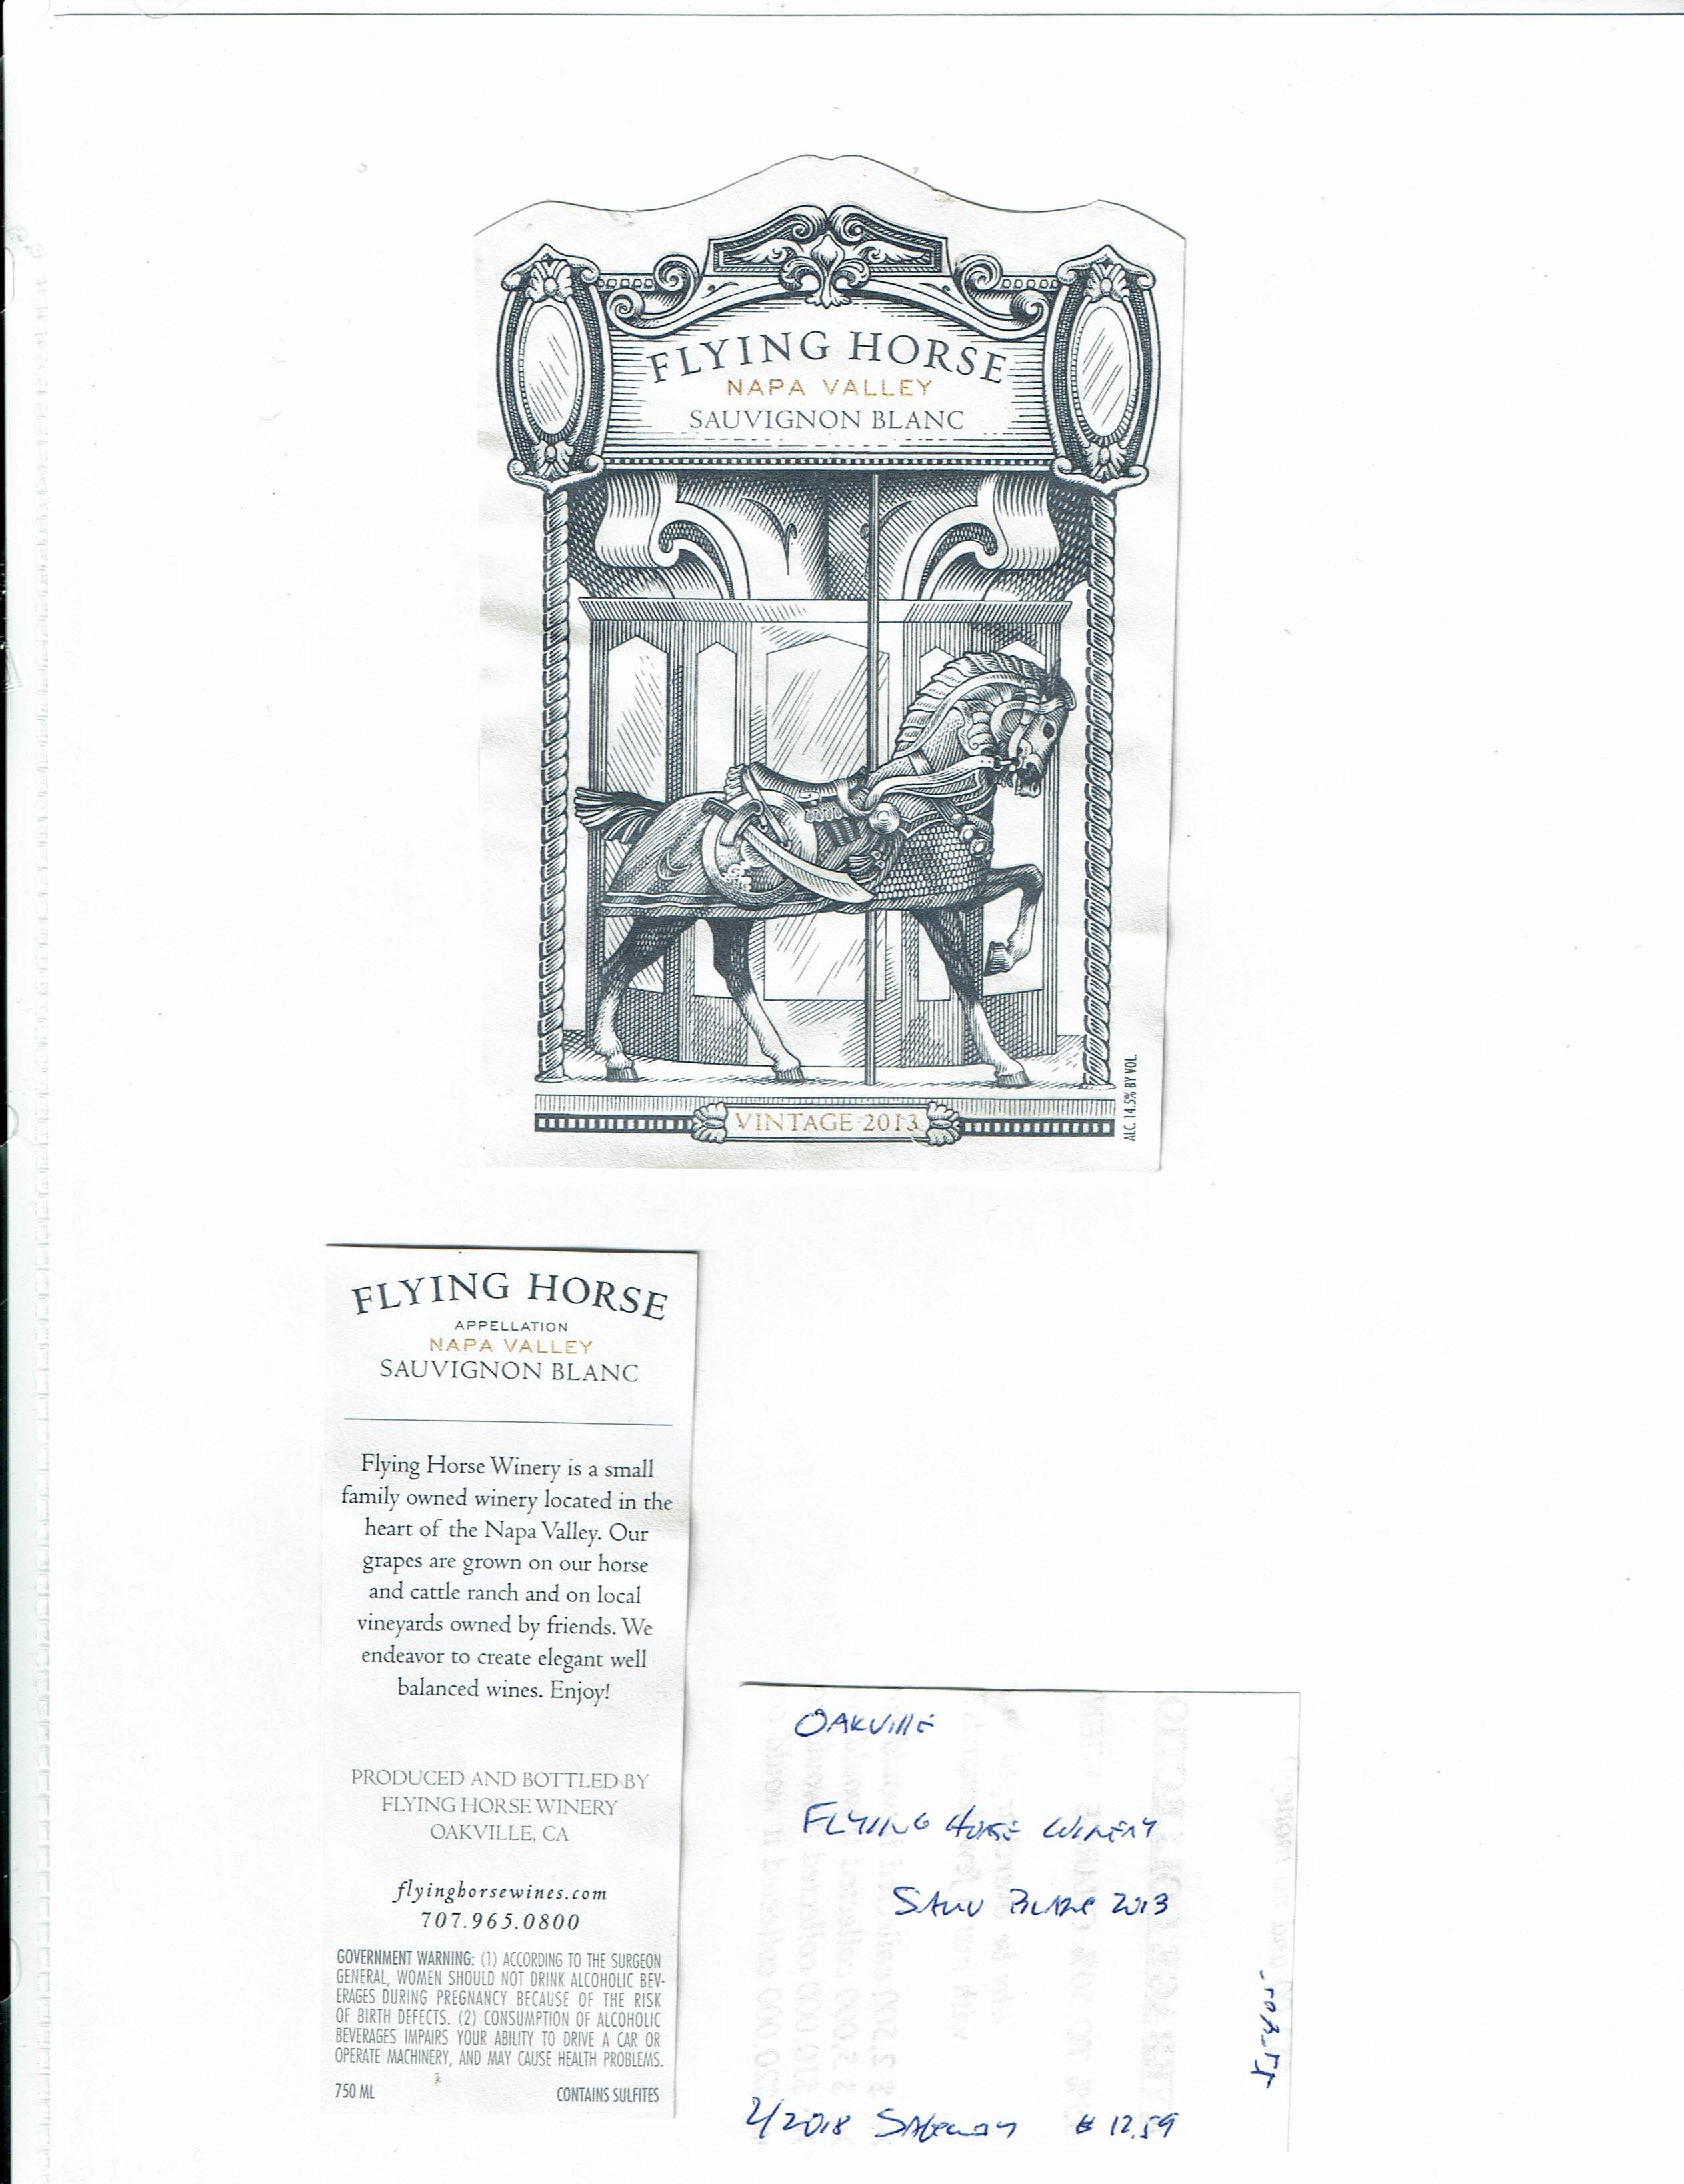 FLYING HORSE
NAPA VALLEY
SAUVIGNON BLANC
VINTAGE 2013
ALC. 14.5% BY VOL.
FLYING HORSE
APPELLATION
NAPA VALLEY
SAUVIGNON BLANC
Flying Horse Winery is a small
family owned winery located in the
heart of the Napa Valley. Our
grapes are grown on our horse
and cattle ranch and on local
vineyards owned by friends. We
endeavor to create elegant well
balanced wines. Enjoy!
PRODUCED AND BOTTLED BY
FLYING HORSE WINERY
OAKVILLE, CA
flyinghorsewines.com
707.965.0800
GOVERNMENT WARNING: (1) ACCORDING TO THE SURGEON
GENERAL, WOMEN SHOULD NOT DRINK ALCOHOLIC BEV-
ERAGES DURING PREGNANCY BECAUSE OF THE RISK
OF BIRTH DEFECTS. (2) CONSUMPTION OF ALCOHOLIC
BEVERAGES IMPAIRS YOUR ABILITY TO DRIVE A CAR OR
OPERATE MACHINERY, AND MAY CAUSE HEALTH PROBLEMS.
750 ML CONTAINS SULFITES
OAKVILLE
FLYING HORSE WINERY
SAUV BLANC 2013
2/2018 SAFEWAY $ 12.59